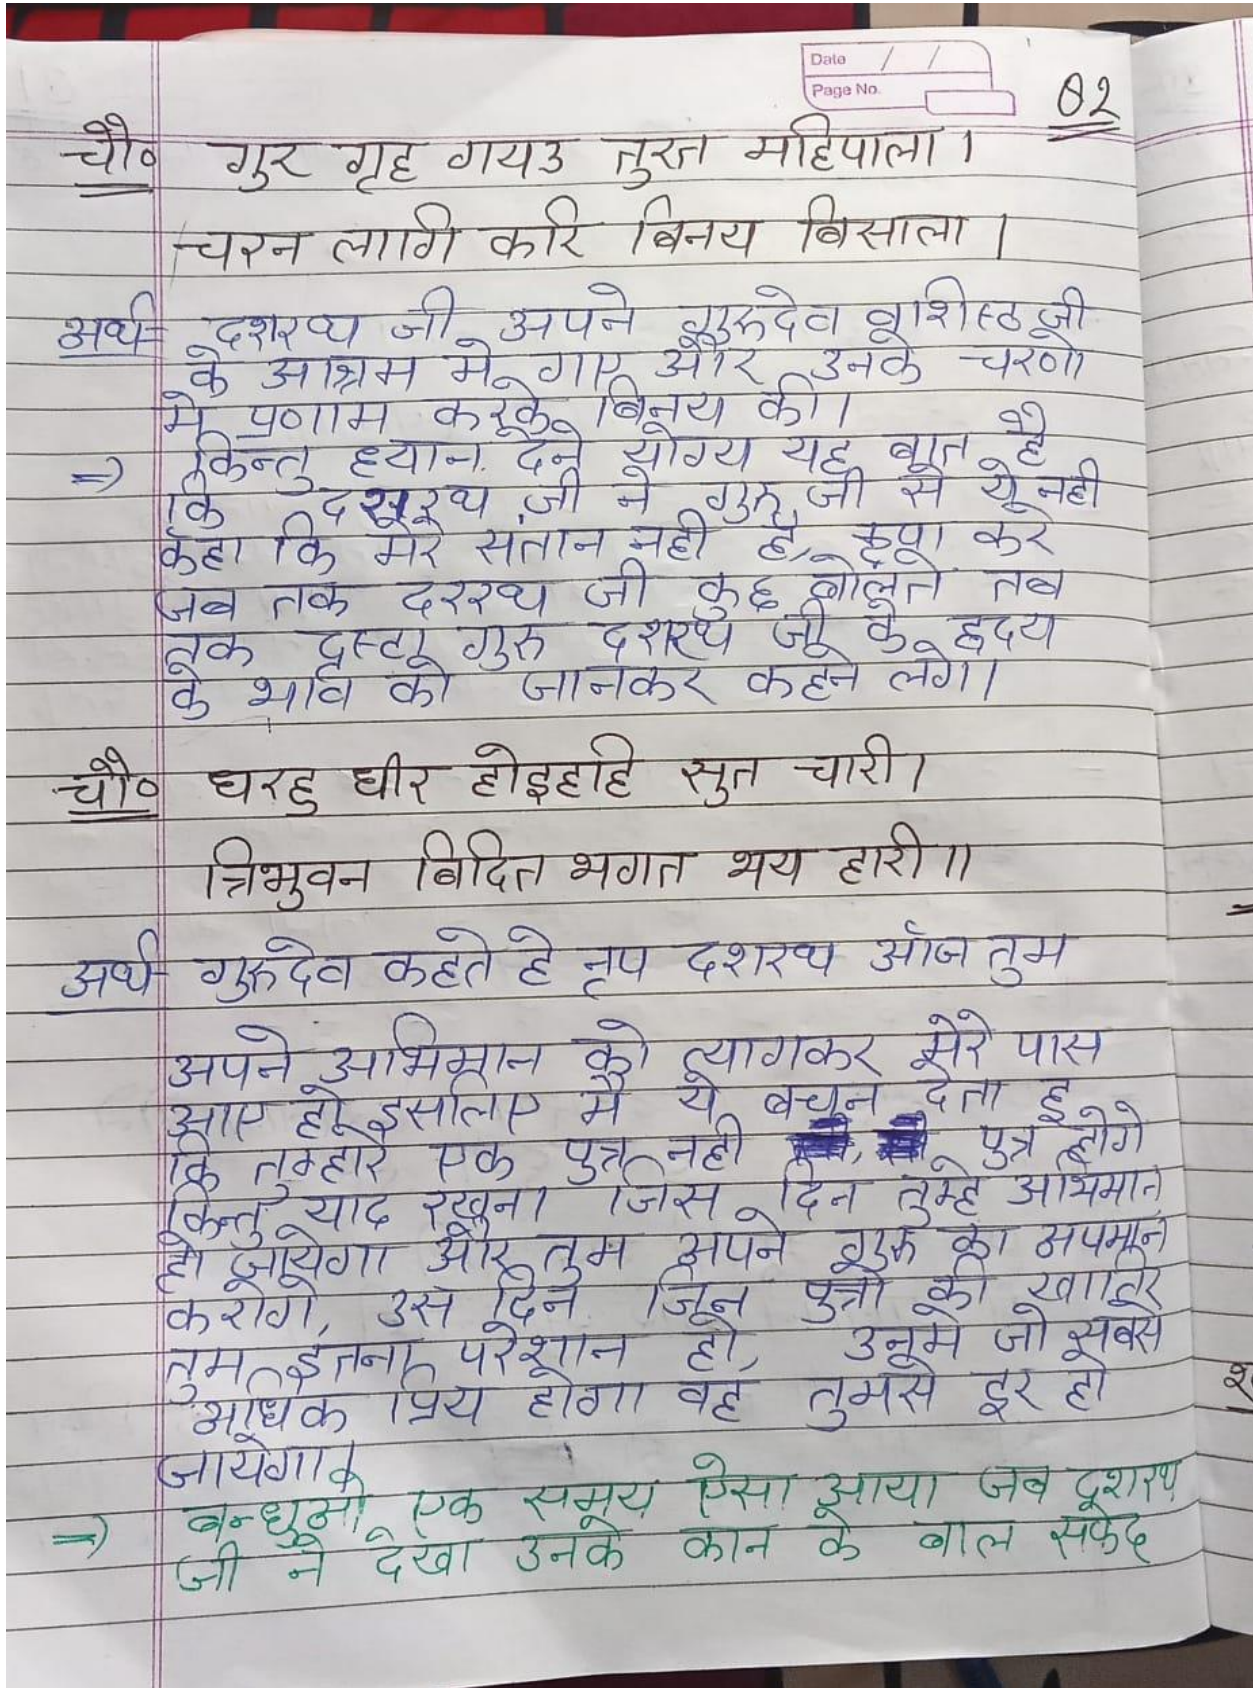 Date / /
Page No.
02
चौ० गुर गृह गयउ तुरत महिपाला।
चरन लागि करि बिनय बिसाला।
अर्थ- दशरथ जी अपने गुरुदेव वशिस्ठ जी
के आश्रम मे गए और उनके चरणो
मे प्रणाम करके बिनय की।
=> किन्तु ध्यान देने योग्य यह बात है
कि दशरथ जी ने गुरु जी से ये नही
कहा कि मेरे संतान नही है, कृपा करे
जब तक दररथ जी कुछ बोलते तब
तक द्रस्टा गुरु दशरथ जी के ह्रदय
के भाव को जानकर कहने लगे।
चौ० धरहु धीर होइहहि सुत चारी।
त्रिभुवन बिदित भगत भय हारी॥
अर्थ- गुरुदेव कहते हे नृप दशरथ ऑज तुम
अपने अभिमान को त्यागकर मेरे पास
आए हो इसलिए मै ये बचन देता हू
कि तुम्हारे एक पुत्र नही पुत्र होगे
किन्तु याद रखना जिस दिन तुम्हे अभिमान
हो जायेगा और तुम अपने गुरु का अपमान
करोगे, उस दिन जिन पुत्रो की खातिर
तुम इतना परेशान हो, उनमे जो सबसे
अधिक प्रिय होगा वह तुमसे दूर हो
जायेगा।
=> बन्धुओ एक समय ऐसा आया जब दशरथ
जी ने देखा उनके कान के बाल सफेद